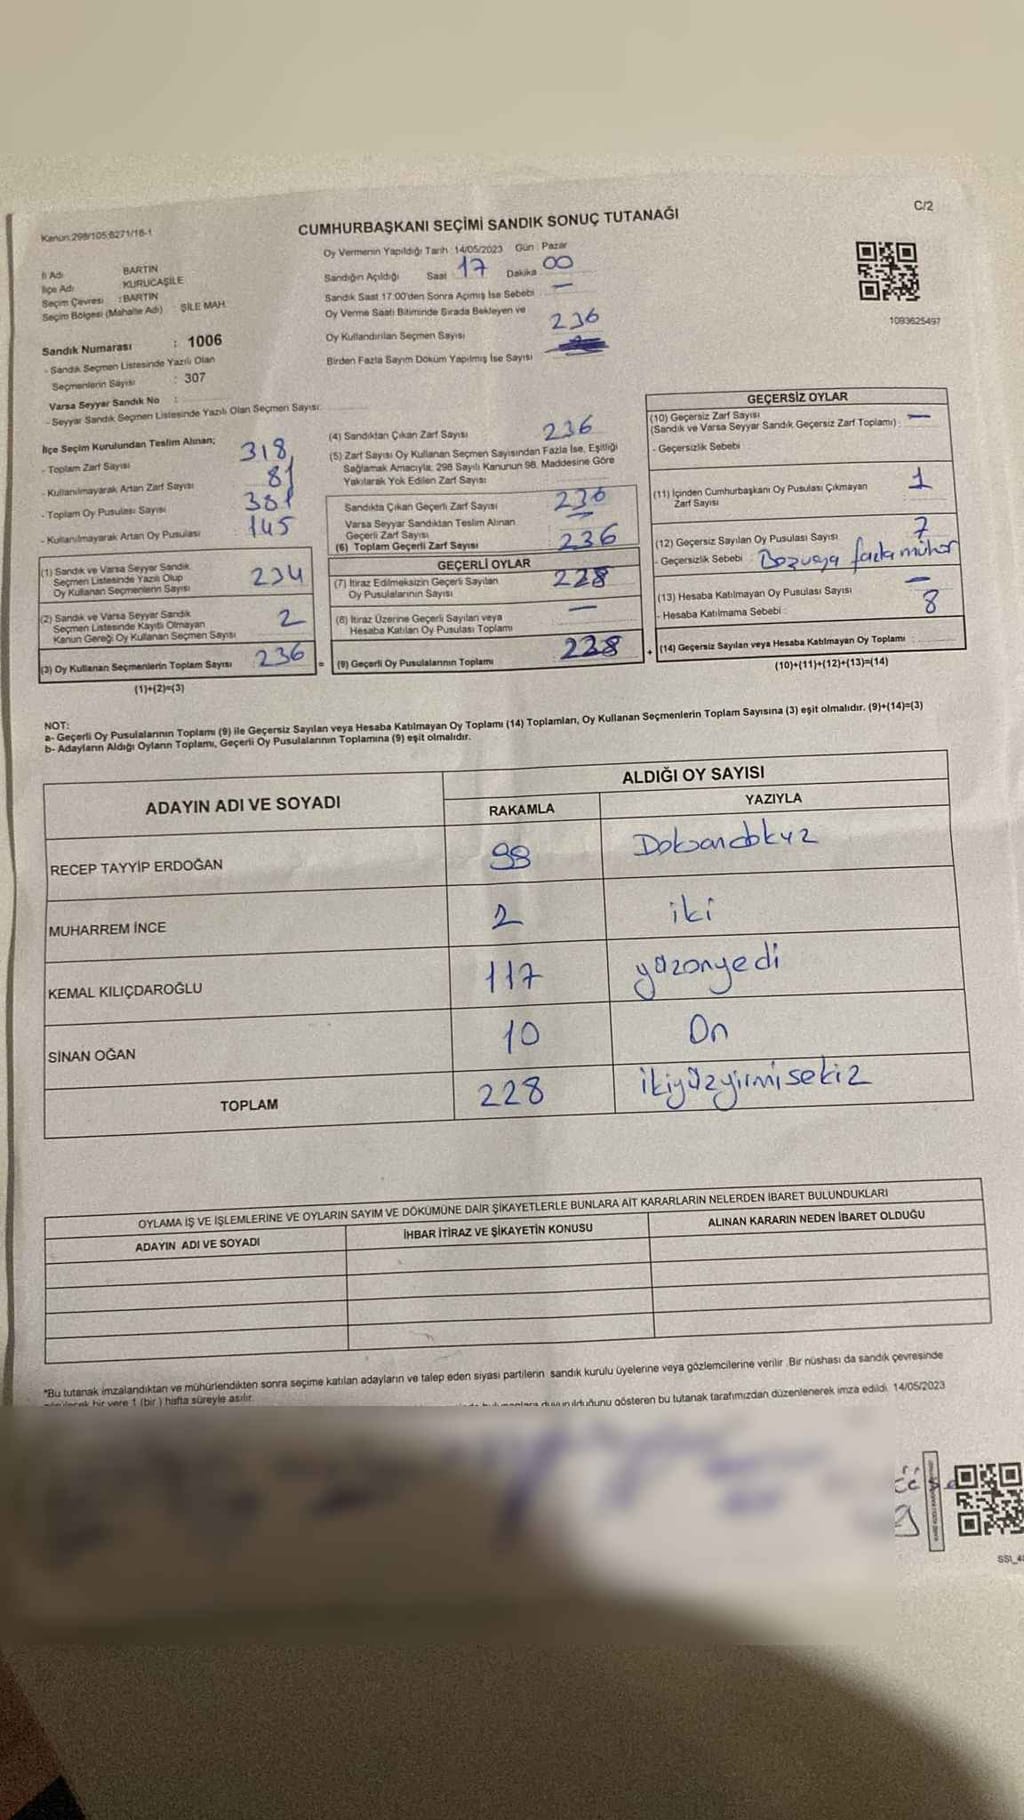 C/2
Kanun:298/105;6271/16-1
CUMHURBAŞKANI SEÇİMİ SANDIK SONUÇ TUTANAĞI
Oy Vermenin Yapıldığı Tarih 14/05/2023 Gün Pazar
Sandığın Açıldığı Saat 17 Dakika 00
Sandık Saat 17:00'den Sonra Açımış İse Sebebi —
Oy Verme Saati Bitiminde Sırada Bekleyen ve
Oy Kullandırılan Seçmen Sayısı 236
Birden Fazla Sayım Döküm Yapılmış İse Sayısı
1093625497
İl Adı BARTIN
İlçe Adı KURUCAŞİLE
Seçim Çevresi :BARTIN
Seçim Bölgesi (Mahalle Adı) ŞİLE MAH.
Sandık Numarası : 1006
- Sandık Seçmen Listesinde Yazılı Olan
Seçmenlerin Sayısı : 307
Varsa Seyyar Sandık No :
- Seyyar Sandık Seçmen Listesinde Yazılı Olan Seçmen Sayısı:
İlçe Seçim Kurulundan Teslim Alınan;
- Toplam Zarf Sayısı 318
- Kullanılmayarak Artan Zarf Sayısı 81
- Toplam Oy Pusulası Sayısı 381
- Kullanılmayarak Artan Oy Pusulası 145
(1) Sandık ve Varsa Seyyar Sandık
Seçmen Listesinde Yazılı Olup
Oy Kullanan Seçmenlerin Sayısı 234
(2) Sandık ve Varsa Seyyar Sandık
Seçmen Listesinde Kayıtlı Olmayan
Kanun Gereği Oy Kullanan Seçmen Sayısı 2
(3) Oy Kullanan Seçmenlerin Toplam Sayısı 236 =
(1)+(2)=(3)
(4) Sandıktan Çıkan Zarf Sayısı 236
(5) Zarf Sayısı Oy Kullanan Seçmen Sayısından Fazla İse, Eşitliği
Sağlamak Amacıyla; 298 Sayılı Kanunun 98. Maddesine Göre
Yakılarak Yok Edilen Zarf Sayısı
Sandıkta Çıkan Geçerli Zarf Sayısı 236
Varsa Seyyar Sandıktan Teslim Alınan
Geçerli Zarf Sayısı
(6) Toplam Geçerli Zarf Sayısı 236
GEÇERLİ OYLAR
(7) İtiraz Edilmeksizin Geçerli Sayılan
Oy Pusulalarının Sayısı 228
(8) İtiraz Üzerine Geçerli Sayılan veya
Hesaba Katılan Oy Pusulası Toplamı —
(9) Geçerli Oy Pusulalarının Toplamı 228 +
GEÇERSİZ OYLAR
(10) Geçersiz Zarf Sayısı
(Sandık ve Varsa Seyyar Sandık Geçersiz Zarf Toplamı) : —
- Geçersizlik Sebebi
(11) İçinden Cumhurbaşkanı Oy Pusulası Çıkmayan
Zarf Sayısı 1
(12) Geçersiz Sayılan Oy Pusulası Sayısı 7
- Geçersizlik Sebebi fazla mühür
(13) Hesaba Katılmayan Oy Pusulası Sayısı —
- Hesaba Katılmama Sebebi : 8
(14) Geçersiz Sayılan veya Hesaba Katılmayan Oy Toplamı
(10)+(11)+(12)+(13)=(14)
NOT:
a- Geçerli Oy Pusulalarının Toplamı (9) ile Geçersiz Sayılan veya Hesaba Katılmayan Oy Toplamı (14) Toplamları, Oy Kullanan Seçmenlerin Toplam Sayısına (3) eşit olmalıdır. (9)+(14)=(3)
b- Adayların Aldığı Oyların Toplamı, Geçerli Oy Pusulalarının Toplamına (9) eşit olmalıdır.
ADAYIN ADI VE SOYADI
ALDIĞI OY SAYISI
RAKAMLA YAZIYLA
RECEP TAYYİP ERDOĞAN 99 Doksandokuz
MUHARREM İNCE 2 iki
KEMAL KILIÇDAROĞLU 117 yüzonyedi
SİNAN OĞAN 10 On
TOPLAM 228 ikiyüzyirmisekiz
OYLAMA İŞ VE İŞLEMLERİNE VE OYLARIN SAYIM VE DÖKÜMÜNE DAİR ŞİKAYETLERLE BUNLARA AİT KARARLARIN NELERDEN İBARET BULUNDUKLARI
ADAYIN ADI VE SOYADI İHBAR İTİRAZ VE ŞİKAYETİN KONUSU ALINAN KARARIN NEDEN İBARET OLDUĞU
*Bu tutanak imzalandıktan ve mühürlendikten sonra seçime katılan adayların ve talep eden siyasi partilerin sandık kurulu üyelerine veya gözlemcilerine verilir. Bir nüshası da sandık çevresinde
bir yere 1 (bir ) hafta süreyle asılır. duyurulduğunu gösteren bu tutanak tarafımızdan düzenlenerek imza edildi. 14/05/2023